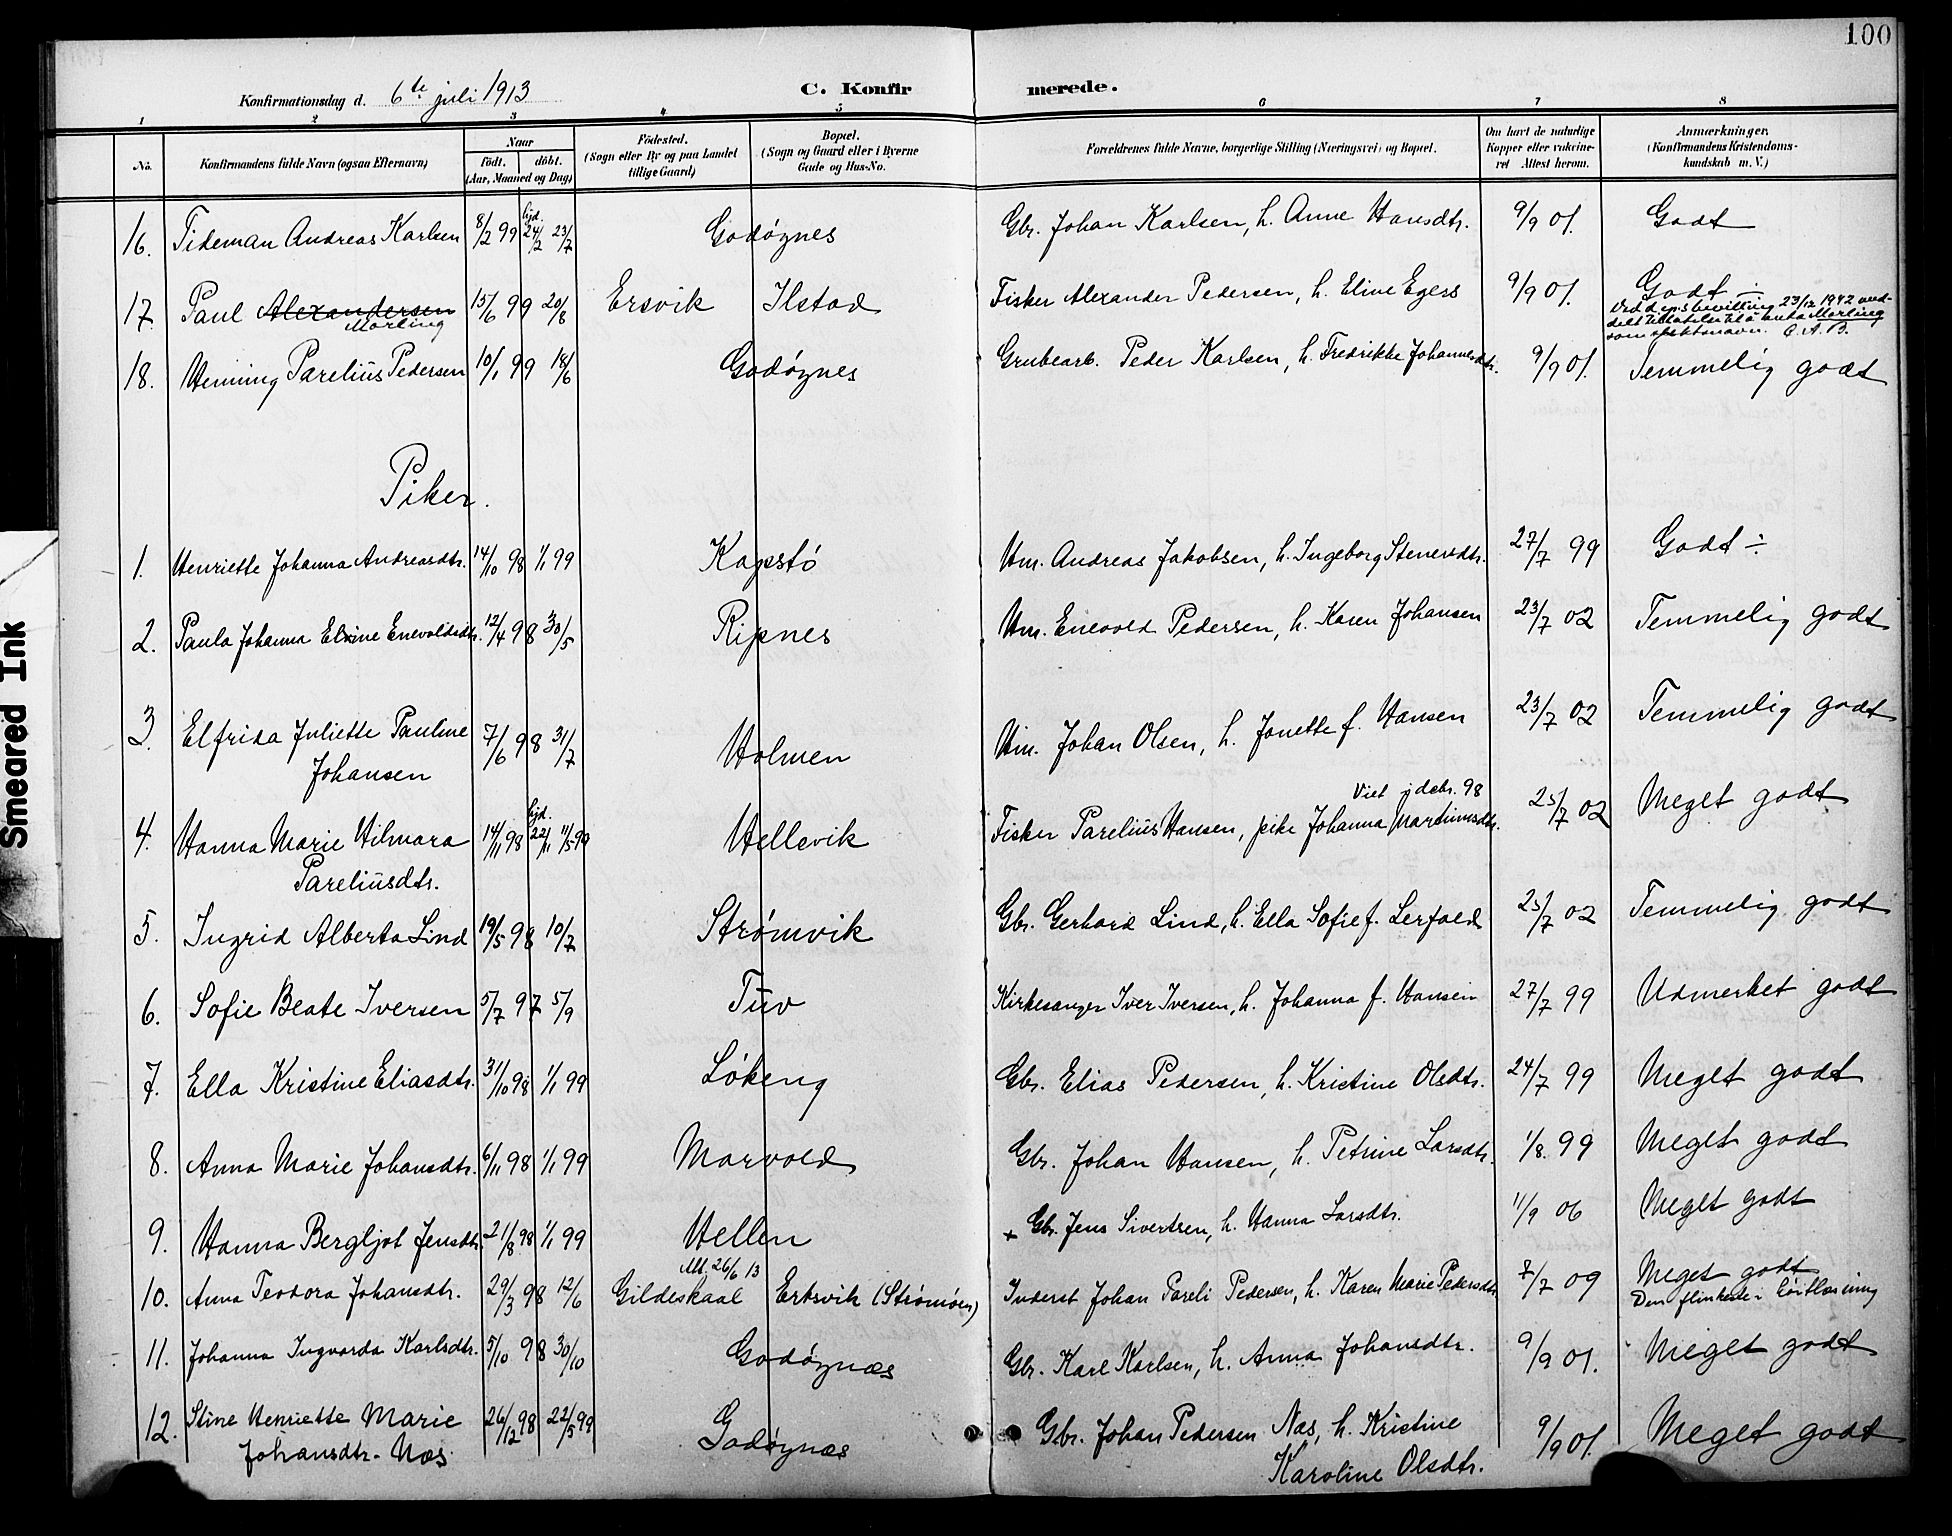 100
Konfirmationsdag d. 6te juli 1913
C. Konfirmerede.
1 2 3 4 5 6 7 8
No. Konfirmandens fulde Navn (ogsaa Efternavn) Naar født. døbt. (Aar, Maaned og Dag) Födested. (Sogn eller By og paa Landet tillige Gaard) Bopæl. (Sogn og Gaard eller i Byerne Gade og Hus-No. Forældrenes fulde Navne, borgerlige Stilling (Næringsvei) og Bopæl. Om havt de naturlige Kopper eller vaccineret Attest herom. Anmærkninger. (Konfirmandens Kristendomskundskab m. V.)
16. Tideman Andreas Karlsen 8/2 99 hjd. 24/2 23/7 Godøynes Gbr. Johan Karlsen, h. Anne Hansdtr. 9/9 01. Godt
17. Paul Alexandersen 15/6 99 20/8 Ersvik Ilstad Fisker Alexander Pedersen, h. Eline Egess 9/9 01. Godt ÷
Mørling
23/12 1942 med-
delt tillatelse til å anta Mørling
som slektsnavn.
18. Henning Parelius Pedersen 10/1 99 18/6 Godøynes Grubearb. Peder Karlsen, h. Fredrikke Johannesdtr. 9/9 01. Temmelig godt
Piker.
1. Henriette Johanna Andreasdtr. 14/10 98 1/1 99 Kapstø Hm. Andreas Jakobsen, h. Ingeborg Stenersdtr. 27/7 99 Godt ÷
2. Paula Johanna Eline Enevoldsdtr. 12/4 98 30/5 Ripnes Hm. Enevold Pedersen, h. Karen Johansen 23/7 02 Temmelig godt
3. Elfrida Juliette Pauline 7/6 98 31/7 Holmen Hm. Johan Olsen, h. Jonette f. Hansen 23/7 02 Temmelig godt
Johansen
Viet 98
4. Hanna Marie Hilmara 14/11 98 hjd. 22/11 11/5 99 Hellevik Fisker Parelius Hansen, pike Johanna Martinusdtr. 25/7 02 Meget godt
Pareliusdtr.
5. Ingrid Alberta Lind 19/5 98 10/7 Strømvik Gbr. Gerhard Lind, h. Ella Sofie f. Lerfald 25/7 02 Temmelig godt
6. Sofie Beate Iversen 5/7 97 5/9 Tuv Kirkesanger Iver Iversen, h. Johanna f. Hansen 27/7 99 Udmerket godt
7. Ella Kristine Eliasdtr. 31/10 98 1/1 99 Løkeng Gbr. Elias Pedersen, h. Kristine Olsdtr. 24/7 99 Meget godt
8. Anna Marie Johansdtr. 6/11 98 1/1 99 Marvold Gbr. Johan Hansen, h. Petrine Larsdtr. 1/8. 99 Meget godt
9. Hanna Bergljot Jensdtr. 21/8 98 1/1 99 Hellen + Gbr. Jens Sivertsen, h. Hanna Larsdtr. 11/9 06 Meget godt
Att. 26/6 13
10. Anna Teodora Johansdtr. 29/3 98 12/6 Gildeskaal Ertsvik (Strømøen) Inderst Johan Pareli Pedersen, h. Karen Marie Pedersdtr. 7/7 09 Meget godt
Den flinkeste i
11. Johanna Ingvarda Karlsdtr. 5/10 98 30/10 Godøynæs Gbr. Karl Karlsen, h. Anna Johansdtr. 9/9 01. Meget godt
12. Stine Henriette Marie 26/12 98 22/5 99 Godøynæs Gbr. Johan Pedersen Næs, h. Kristine 9/9 01. Meget godt
Johansdtr. Næs. Karoline Olsdtr.
Smeared Ink